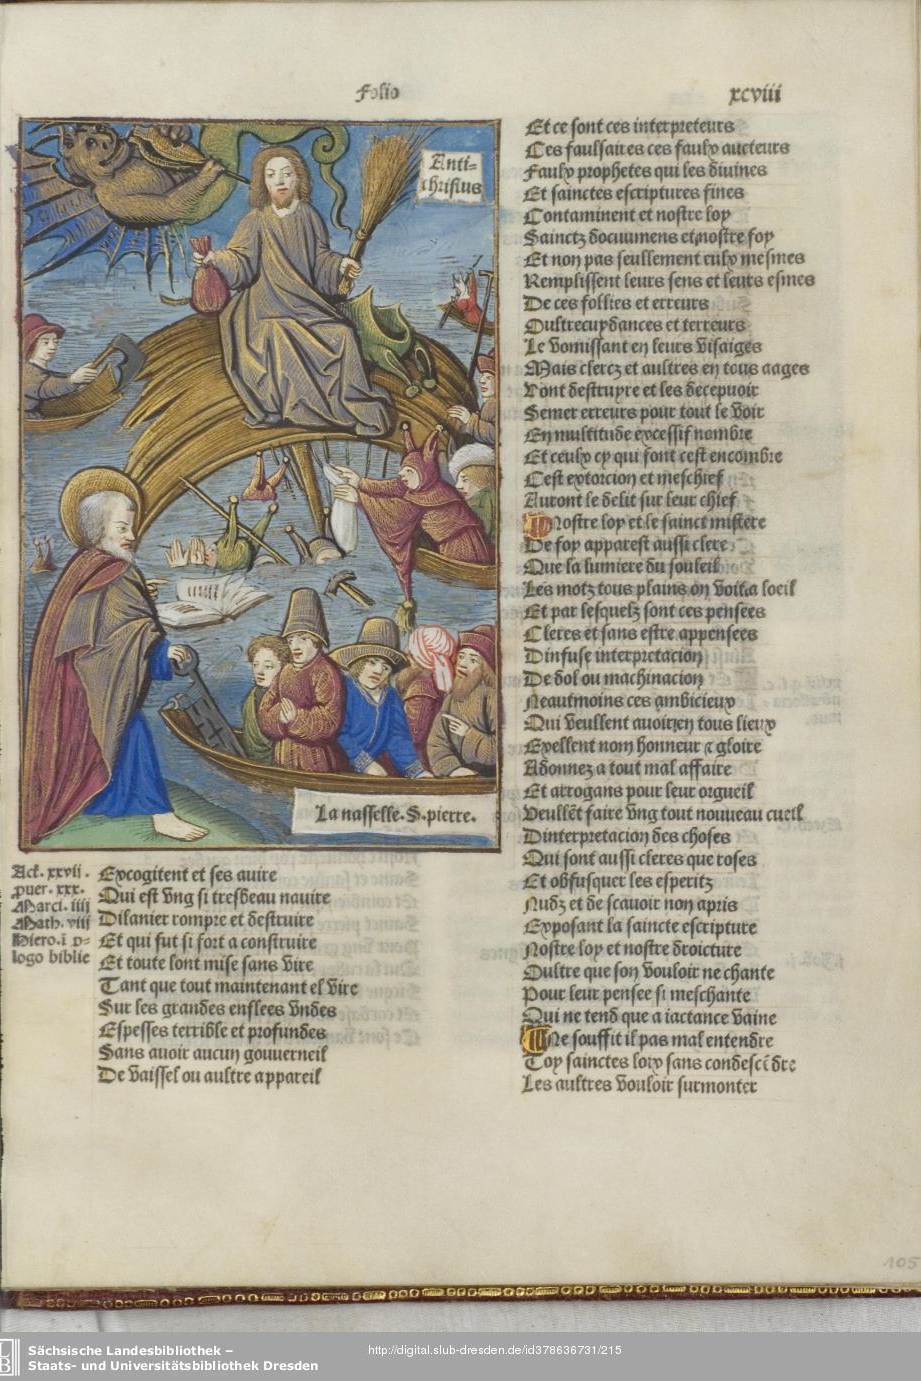 Folio
xcviii
Anti-
christus
La nasselle. S. pierre.
Act. xxvii.
puer. xxx.
Marci. iiii
Math. viii
Hiero. i p-
logo biblie
Excogitent et ses auire
Qui est vng si tresbeau nauire
Dilanier rompre et destruire
Et qui fut si fort a construire
Et toute lont mise sans vire
Tant que tout maintenant el vire
Sur les grandes enflees vndes
Espesses terrible et profundes
Sans auoir aucun gouuerneil
De vaissel ou aultre appareil
Et ce sont ces interpreteurs
Ces faulsaires ces faulx aucteurs
Faulx prophetes qui les diuines
Et sainctes escriptures fines
Contaminent et nostre loy
Sainctz documens et nostre foy
Et non pas seullement eulx mesmes
Remplissent leurs sens et leurs esmes
De ces follies et erreurs
Oultrecuydances et terreurs
Le vomissant en leurs visaiges
Mais clercz et aultres en tous aages
Vont destruyre et les decepuoir
Semer erreurs pour tout le voir
En multitude excessif nombre
Et ceulx cy qui font cest encombre
Cest extorcion et meschief
Auront le delit sur leur chief
Nostre loy et le sainct mistere
De foy apparest aussi clere
Que la lumiere du souleil
Les motz tous plains on voit a loeil
Et par lesquelz sont ces pensees
Cleres et sans estre appensees
Dinfuse interpretacion
De dol ou machinacion
Neautmoins ces ambicieux
Qui veullent auoir en tous lieux
Exellent nom honneur & gloire
Adonnez a tout mal affaire
Et arrogans pour leur orgueil
Veullẽt faire vng tout nouueau cueil
Dinterpretacion des choses
Qui sont aussi cleres que roses
Et obfusquer les esperitz
Nudz et de scauoir non apris
Exposant la saincte escripture
Nostre loy et nostre droicture
Oultre que son vouloir ne chante
Pour leur pensee si meschante
Qui ne tend que a iactance vaine
Ne souffit il pas mal entendre
Toy sainctes loix sans condescẽdre
Les aultres vouloir surmonter
105
Sächsische Landesbibliothek –
Staats- und Universitätsbibliothek Dresden
http://digital.slub-dresden.de/id378636731/215